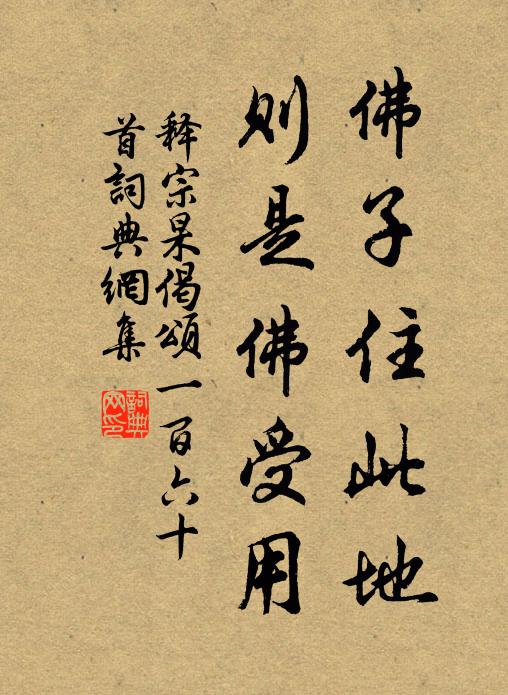 佛子住此地
则是佛受用
释宗杲偈颂一百六十
首詞典網集
詞典
网印